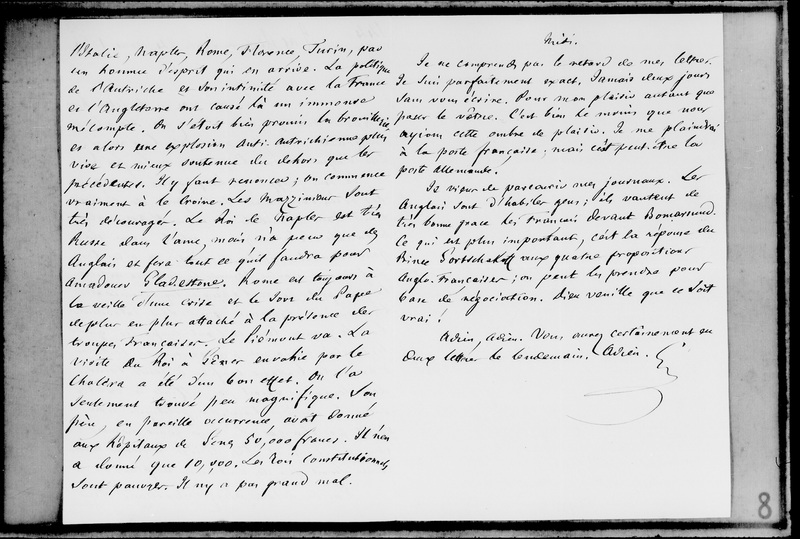 l'Italie, Naples, Rome, Florence, Turin, par
un homme d'esprit qui en arrive. La politique
de l'Autriche et son intimité avec la France
et l'Angleterre ont causé là un immense
mécompte. On s'était bien promis la brouillerie
et alors une explosion anti-autrichienne plus
vive et mieux soutenue du dehors que les
précédentes. Il y faut renoncer ; on commence
vraiment à le croire. Les Mazziniens sont
très découragés. Le Roi de Naples est très
Russe dans l'ame, mais il a peur des
Anglais et fera tout ce qu'il faudra pour
amadouer Gladstone. Rome est toujours à
la veille d'une crise et le sort du Pape
de plus en plus attaché à la présence des
troupes françaises. Le Piémont va. La
visite du Roi à Gênes envahie par le
Choléra a été d'un bon effet. On l'a
seulement trouvé peu magnifique. Son
père, en pareille occurrence, avait donné
aux hôpitaux de Gênes 50,000 francs. Il n'en
a donné que 10,000. Les rois constitutionnels
sont pauvres. Il n'y a pas grand mal.
Midi.
Je ne comprends pas le retard de mes lettres.
Je suis parfaitement exact. Jamais deux jours
sans vous écrire. Pour mon plaisir autant que
pour le vôtre. C'est bien le moins que nous
ayions cette ombre de plaisir. Je me plaindrai
à la poste française ; mais c'est peut-être la
poste allemande.
Je viens de parcourir mes journaux. Les
Anglais sont d'habiles gens ; ils vantent de
très bonne grace les Français devant Bomarsund.
Ce qui est plus important, c'est la réponse du
Prince Gortschakoff aux quatre propositions
Anglo-Françaises ; on peut les prendre pour
base de négociation. Dieu veuille que ce soit
vrai !
Adieu, Adieu. Vous aurez certainement eu
deux lettres le lendemain. Adieu.
G
8